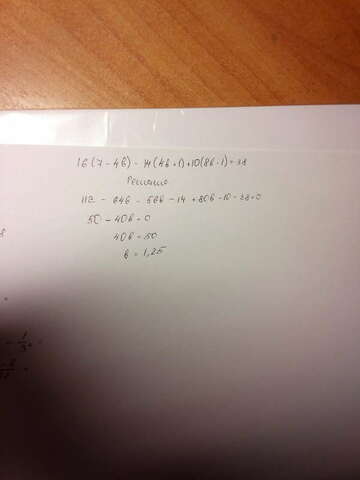 16(7-4b) - 14(4b+1)+10(8b-1)=38
Решение
112 - 64b - 56b - 14 + 80b - 10 - 38=0
50 - 40b = 0
40b = 50
b = 1,25